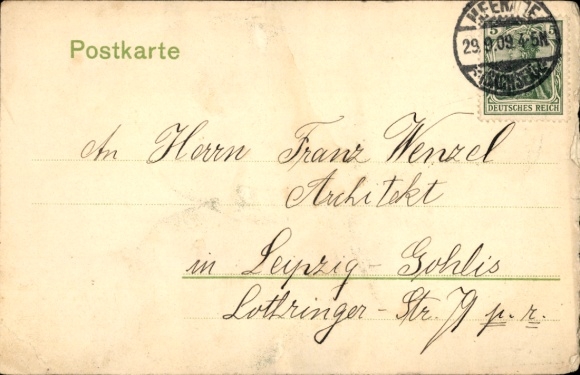 Postkarte
5 5
29.9.09.4-5N
DEUTSCHES REICH
An Herrn Franz Wenzel
Architekt
in Leipzig-Gohlis
Lothringer-Str. 79 p. r.